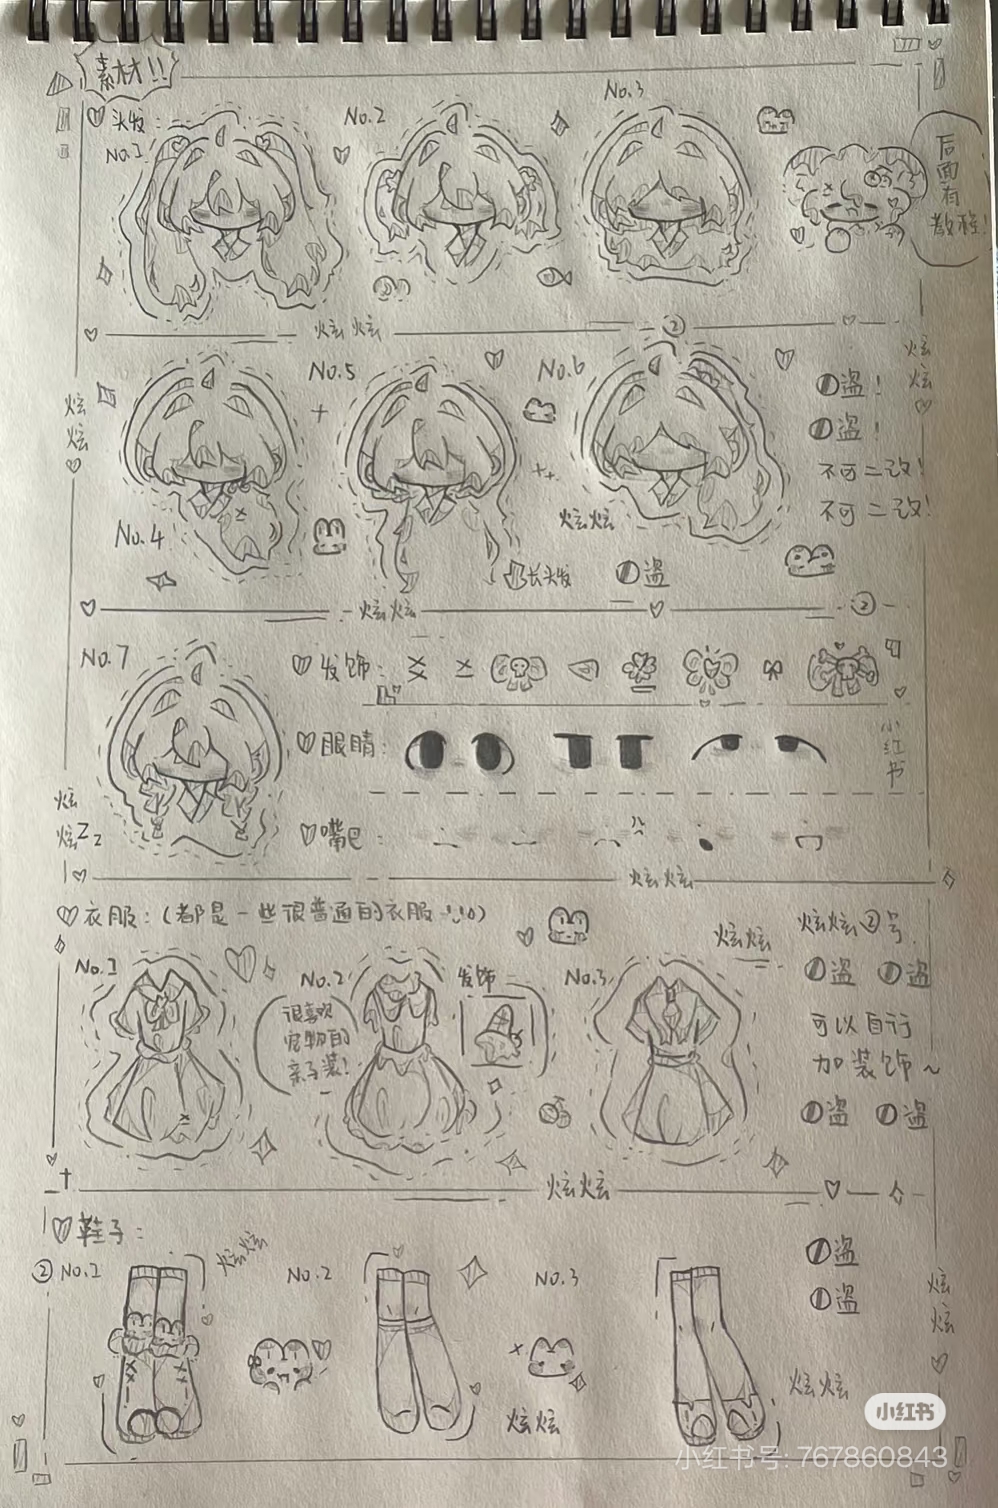 素材!!
头发:
No.1
No.2
No.3
后面有教程!
炫炫
②
炫炫
炫炫
No.4
No.5
No.6
炫炫
长头发
⊘盗
⊘盗!
⊘盗!
不可二改!
不可二改!
炫炫
②
No.7
发饰:
眼睛:
小红书
嘴巴:
炫炫Zz
炫炫
衣服:(都是一些很普通的衣服
No.1
No.2
很喜欢
宠物的
亲子装!
发饰
No.3
炫炫
炫炫②号.
⊘盗 ⊘盗
可以自行
加装饰~
⊘盗 ⊘盗
炫炫
鞋子:
②No.1
炫炫
No.2
No.3
⊘盗
⊘盗
炫炫
炫炫
炫炫
小红书
小红书号: 767860843